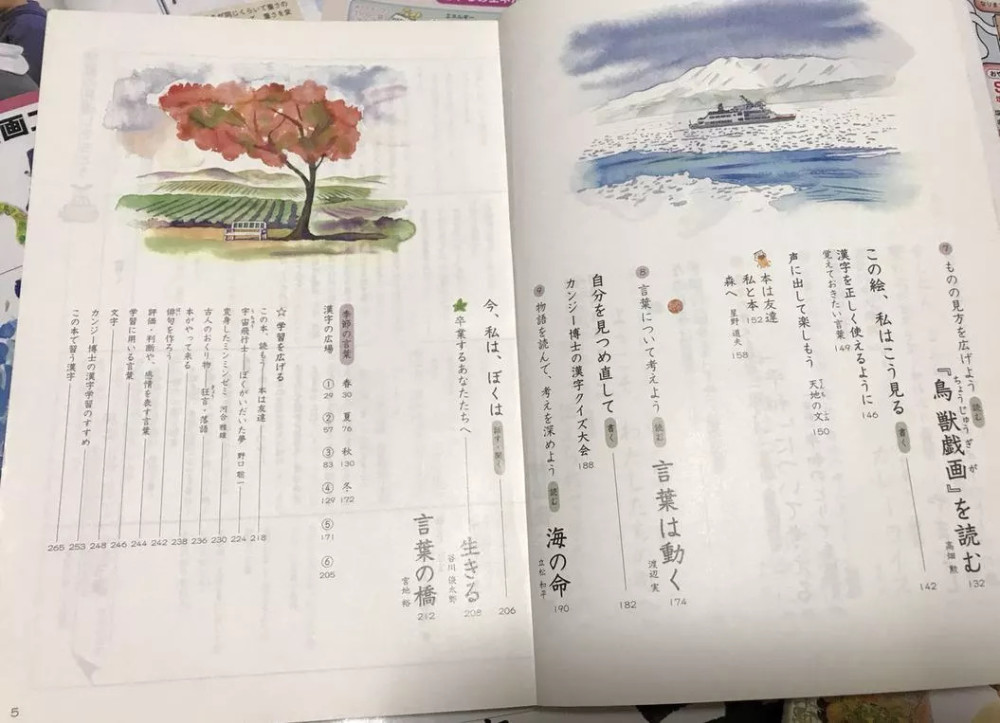 ⑦ ものの見方を広げよう 読む
『鳥獣戯画』を読む 高畑 勲 132
ちょうじゅうぎが
この絵、私はこう見る 書く 142
漢字を正しく使えるように 146
覚えておきたい言葉 149
声に出して楽しもう 天地の文 150
本は友達
私と本 152
森へ 星野道夫 158
⑧ 言葉について考えよう 読む
言葉は動く 渡辺 実 174
自分を見つめ直して 書く 182
カンジー博士の漢字クイズ大会 188
⑨ 物語を読んで、考えを深めよう 読む
海の命 立松 和平 190
今、私は、ぼくは 話す・聞く 206
卒業するあなたたちへ
生きる 谷川 俊太郎 208
言葉の橋 宮地 裕 212
季節の言葉 春 30 夏 76 秋 130 冬 172
漢字の広場 ① 29 ② 57 ③ 83 ④ 129 ⑤ 171 ⑥ 205
☆ 学習を広げる
この本、読もう 本は友達 218
宇宙飛行士――ぼくがいだいた夢 野口 聡一 224
変身したミンミンゼミ 河合 雅雄 230
古人のおくり物 狂言・落語 236
本がやって来る 238
俳句を作ろう 242
評価・判断や、感情を表す言葉 244
学習に用いる言葉 246
文字 248
カンジー博士の漢字学習のすすめ 253
この本で習う漢字 265
5